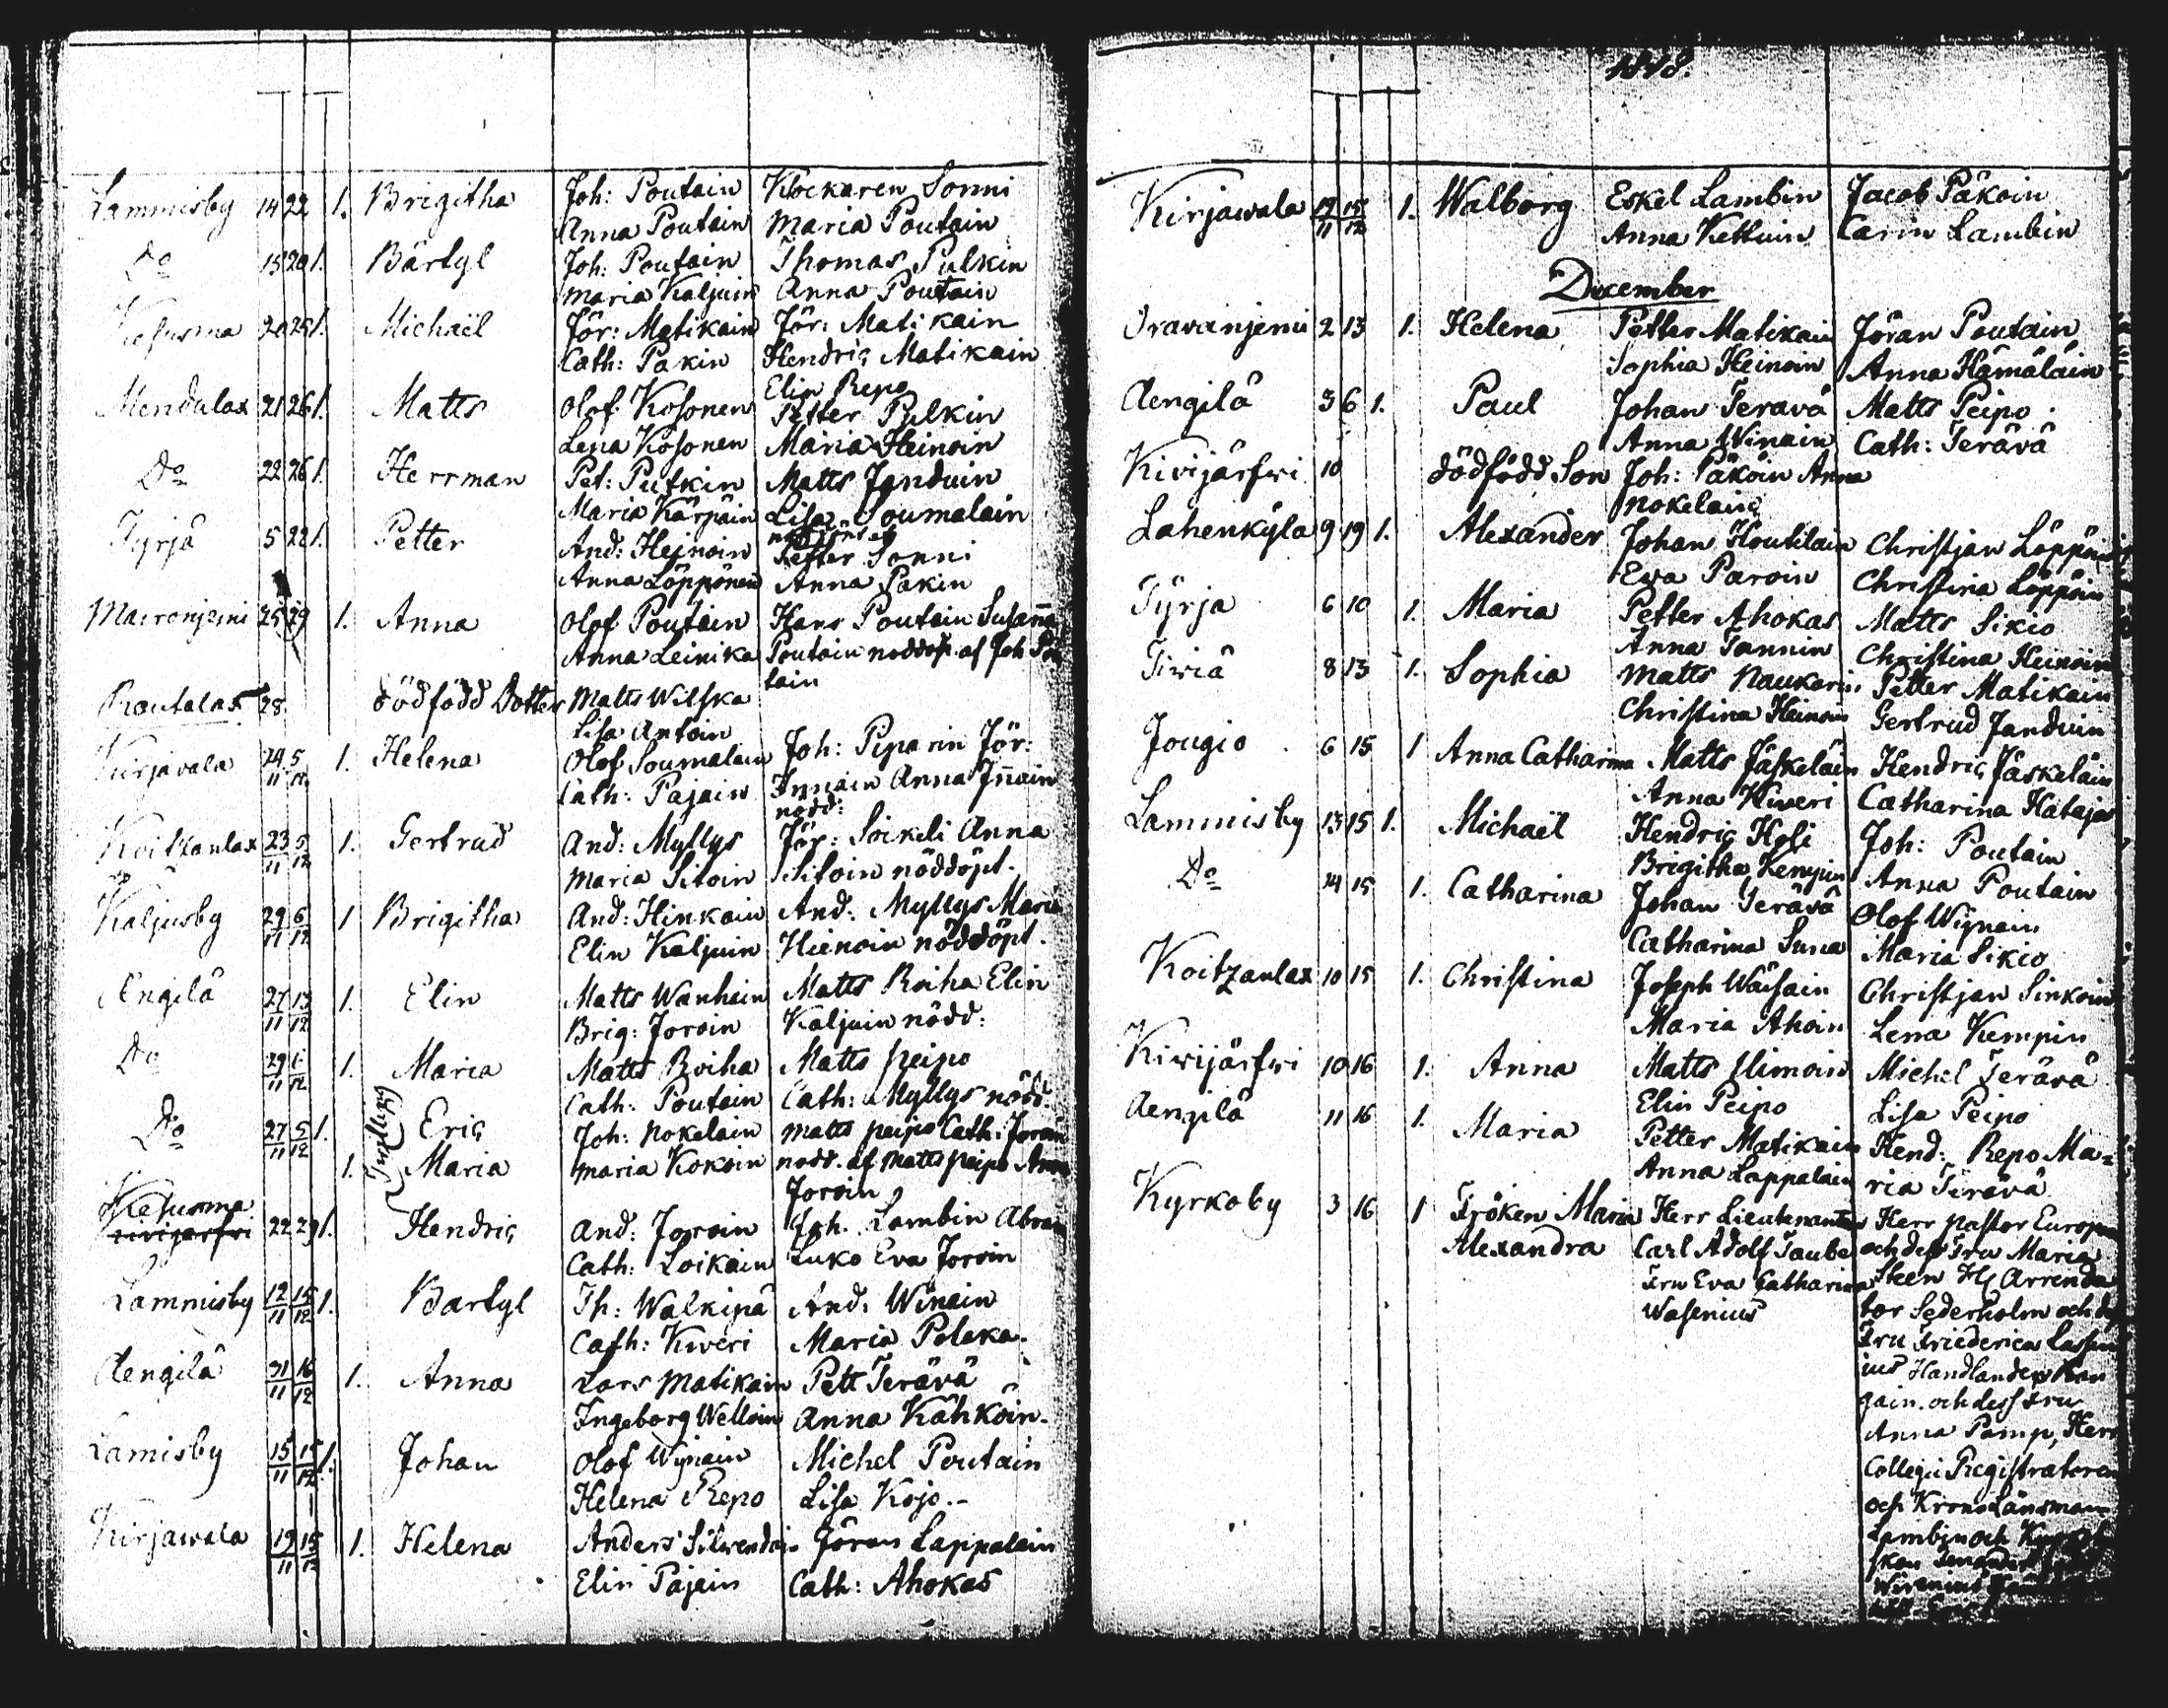 Lammisby 14 22 1. Brigitha Joh: Poutain Klockaren Sonni
Anna Poutain Maria Poutain
Do 15 20 1. Bärtyl Joh: Poutain Thomas Pulkin
Maria Kaljuin Anna Poutain
20 25 1. Michaël Jör: Matikain Jör: Matikain
Cath: Pakin Hendric Matikain
Elin Repo
Mendulax 21 26 1. Matts Olof Kosonen Petter Pulkin
Lena Kosonen Maria Heinoin
Do 22 26 1. Herrman Pet: Putkin Matts Janduin
Maria Kärpäin Lisa Soumalain
Tyrjä 5 22 1. Petter And: Heinoin Petter Sonni
Anna Löppönen Anna Pakin
25 29 1. Anna Olof Poutain Hans Poutain Susanna
Anna Leinika Poutain nöddöpt. af Joh Pou
tain
Rautalax 28 dödfödd Dotter Matts Wilska
Lisa Antoin
Kirjavala 24/11 5/12 1. Helena Olof Soumalain Joh: Piparin Jör:
Cath: Pajain Innain Anna Inain
nödd:
Koitzanlax 23/11 5/12 1. Gertrud And: Myllys Jör: Soikeli Anna
Maria Sitoin Sitoin nöddöpt.
Kaljusby 29/11 6/12 1 Brigitha And: Hinkain And: Myllys Maria
Elin Kaljuin Hienoin nöddöpt.
Ängilä 27/11 13/12 1. Elin Matts Wanhain Matts Roiha Elin
Brig: Joroin Kaljuin nödd:
Do 29/11 6/12 1. Maria Matts Roiha Matts Peipo
Cath: Poutain Cath: Myllys nödd:
Do 27/11 5/12 1. Tvillingar Eric Joh: Nokelain Matts Peipo Cath: Joroin
1. Maria Maria Kokoin nödd. af Matts Peipo Anna
Joroin
22 29 1. Hendric And: Joroin Joh. Lambin Abram
Cath: Loikain Luko Eva Joroin
Lammisby 12/11 15/12 1. Bartyl Th: Walkipä And: Winain
Cath: Kiveri Maria Polaka.
Aengilä 31/11 16/12 1. Anna Lars Matikain Pett Terävä
Ingeborg Welloin Anna Kähköin.
Lamisby 15/11 15/12 1. Johan Olof Wijnain Michel Poutain
Helena Repo Lisa Kojo.-
Kirjawala 19/11 15/12 1. Helena Anders Silvendoin Jöran Lappalain
Elin Pajain Cath: Ahokas
1818.
Kirjawala 19/11 15/12 1. Walborg Eskel Lambin Jacob Päkoin
Anna Kettuin Carin Lambin
December
Oravanjemi 2 13 1. Helena Petter Matikain Jöran Poutain
Sophia Heinoin Anna Hämäläin
Aengilä 3 6 1. Paul Johan Terävä Matts Peipo
Anna Winain Cath: Terävä
Kivijärfvi 10 dödfödd Son Joh: Päköin Anna
Nokelain
Lahenkylä 9 19 1. Alexander Johan Houtilain Christjan Löppöin
Eva Paroin Christina Löppöin
Tyrja 6 10 1. Maria Petter Ahokas Matts Sikio
Anna Tannin Christina Heinoin
8 13 1. Sophia Matts Naukarin Petter Matikain
Christina Heinoin Gertrud Janduin
Jougio 6 15 1 Anna Catharina Matts Jäskeläin Hendric Jäskeläin
Anna Kiveri Catharina Hataja
Lammisby 13 15 1. Michaël Hendric Holi Joh: Poutain
Brigitha Kempin Anna Poutain
Do 14 15 1. Catharina Johan Terävä Olof Wijnain
Catharina Suna Maria Sikio
Koitzanlax 10 15 1. Christina Joseph Wäisain Christjan Sinkoin
Maria Ahoin Lena Kempin
Kivijärfvi 10 16 1. Anna Matts Ilimoin Michel Terävä
Elin Peipo Lisa Peipo
Aengilä 11 16 1. Maria Petter Matikain Hend: Repo Ma=
Anna Lappalain ria Terävä
Kyrkoby 3 16 1 Fröken Maria Herr Lieutenanten Herr Pastor Europæus
Alexandra Carl Adolf Taube och dess Fru Maria
Fru Eva Catharina Steen Hr Arrenda
Wasenius tor Sederholm och dess
Fru Friederica Lassen
ius Handlanden
gain. och dess Fru
Anna Pamp, Herr
Collegii Registratoren
och KronoLänsman
Lambin och